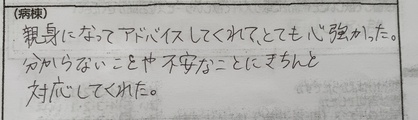 (病棟)
親身になってアドバイスしてくれて、とても心強かった。
分からないことや不安なことにきちんと
対応してくれた。